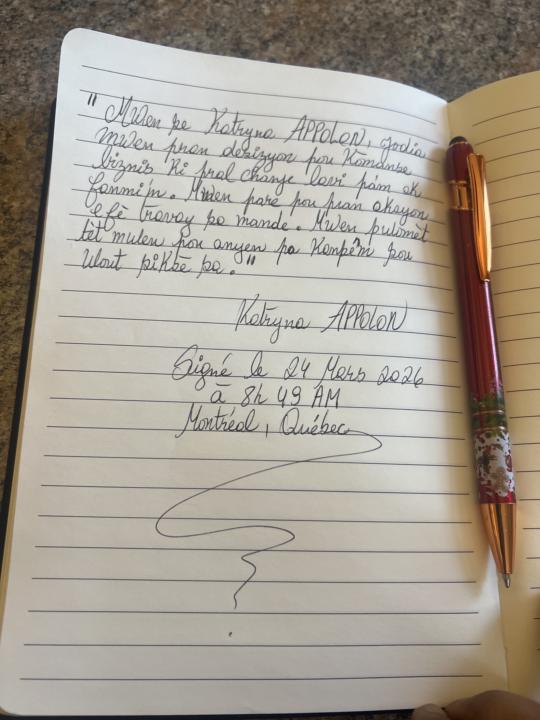 "Mwen se Katryna APPOLON, jodia
mwen pran desizyon pou komanse
biznis ki pral change lavi pám ak
fanmi'm. Mwen pare pou pran aksyon
e fè travay pa mande. Mwen pwomèt
tèt mwen pou anyen pa kanpe'm pou
wout piksè pa."
Katryna APPOLON
Signé le 24 Mars 2026
à 8h 49 AM
Montréal, Québec